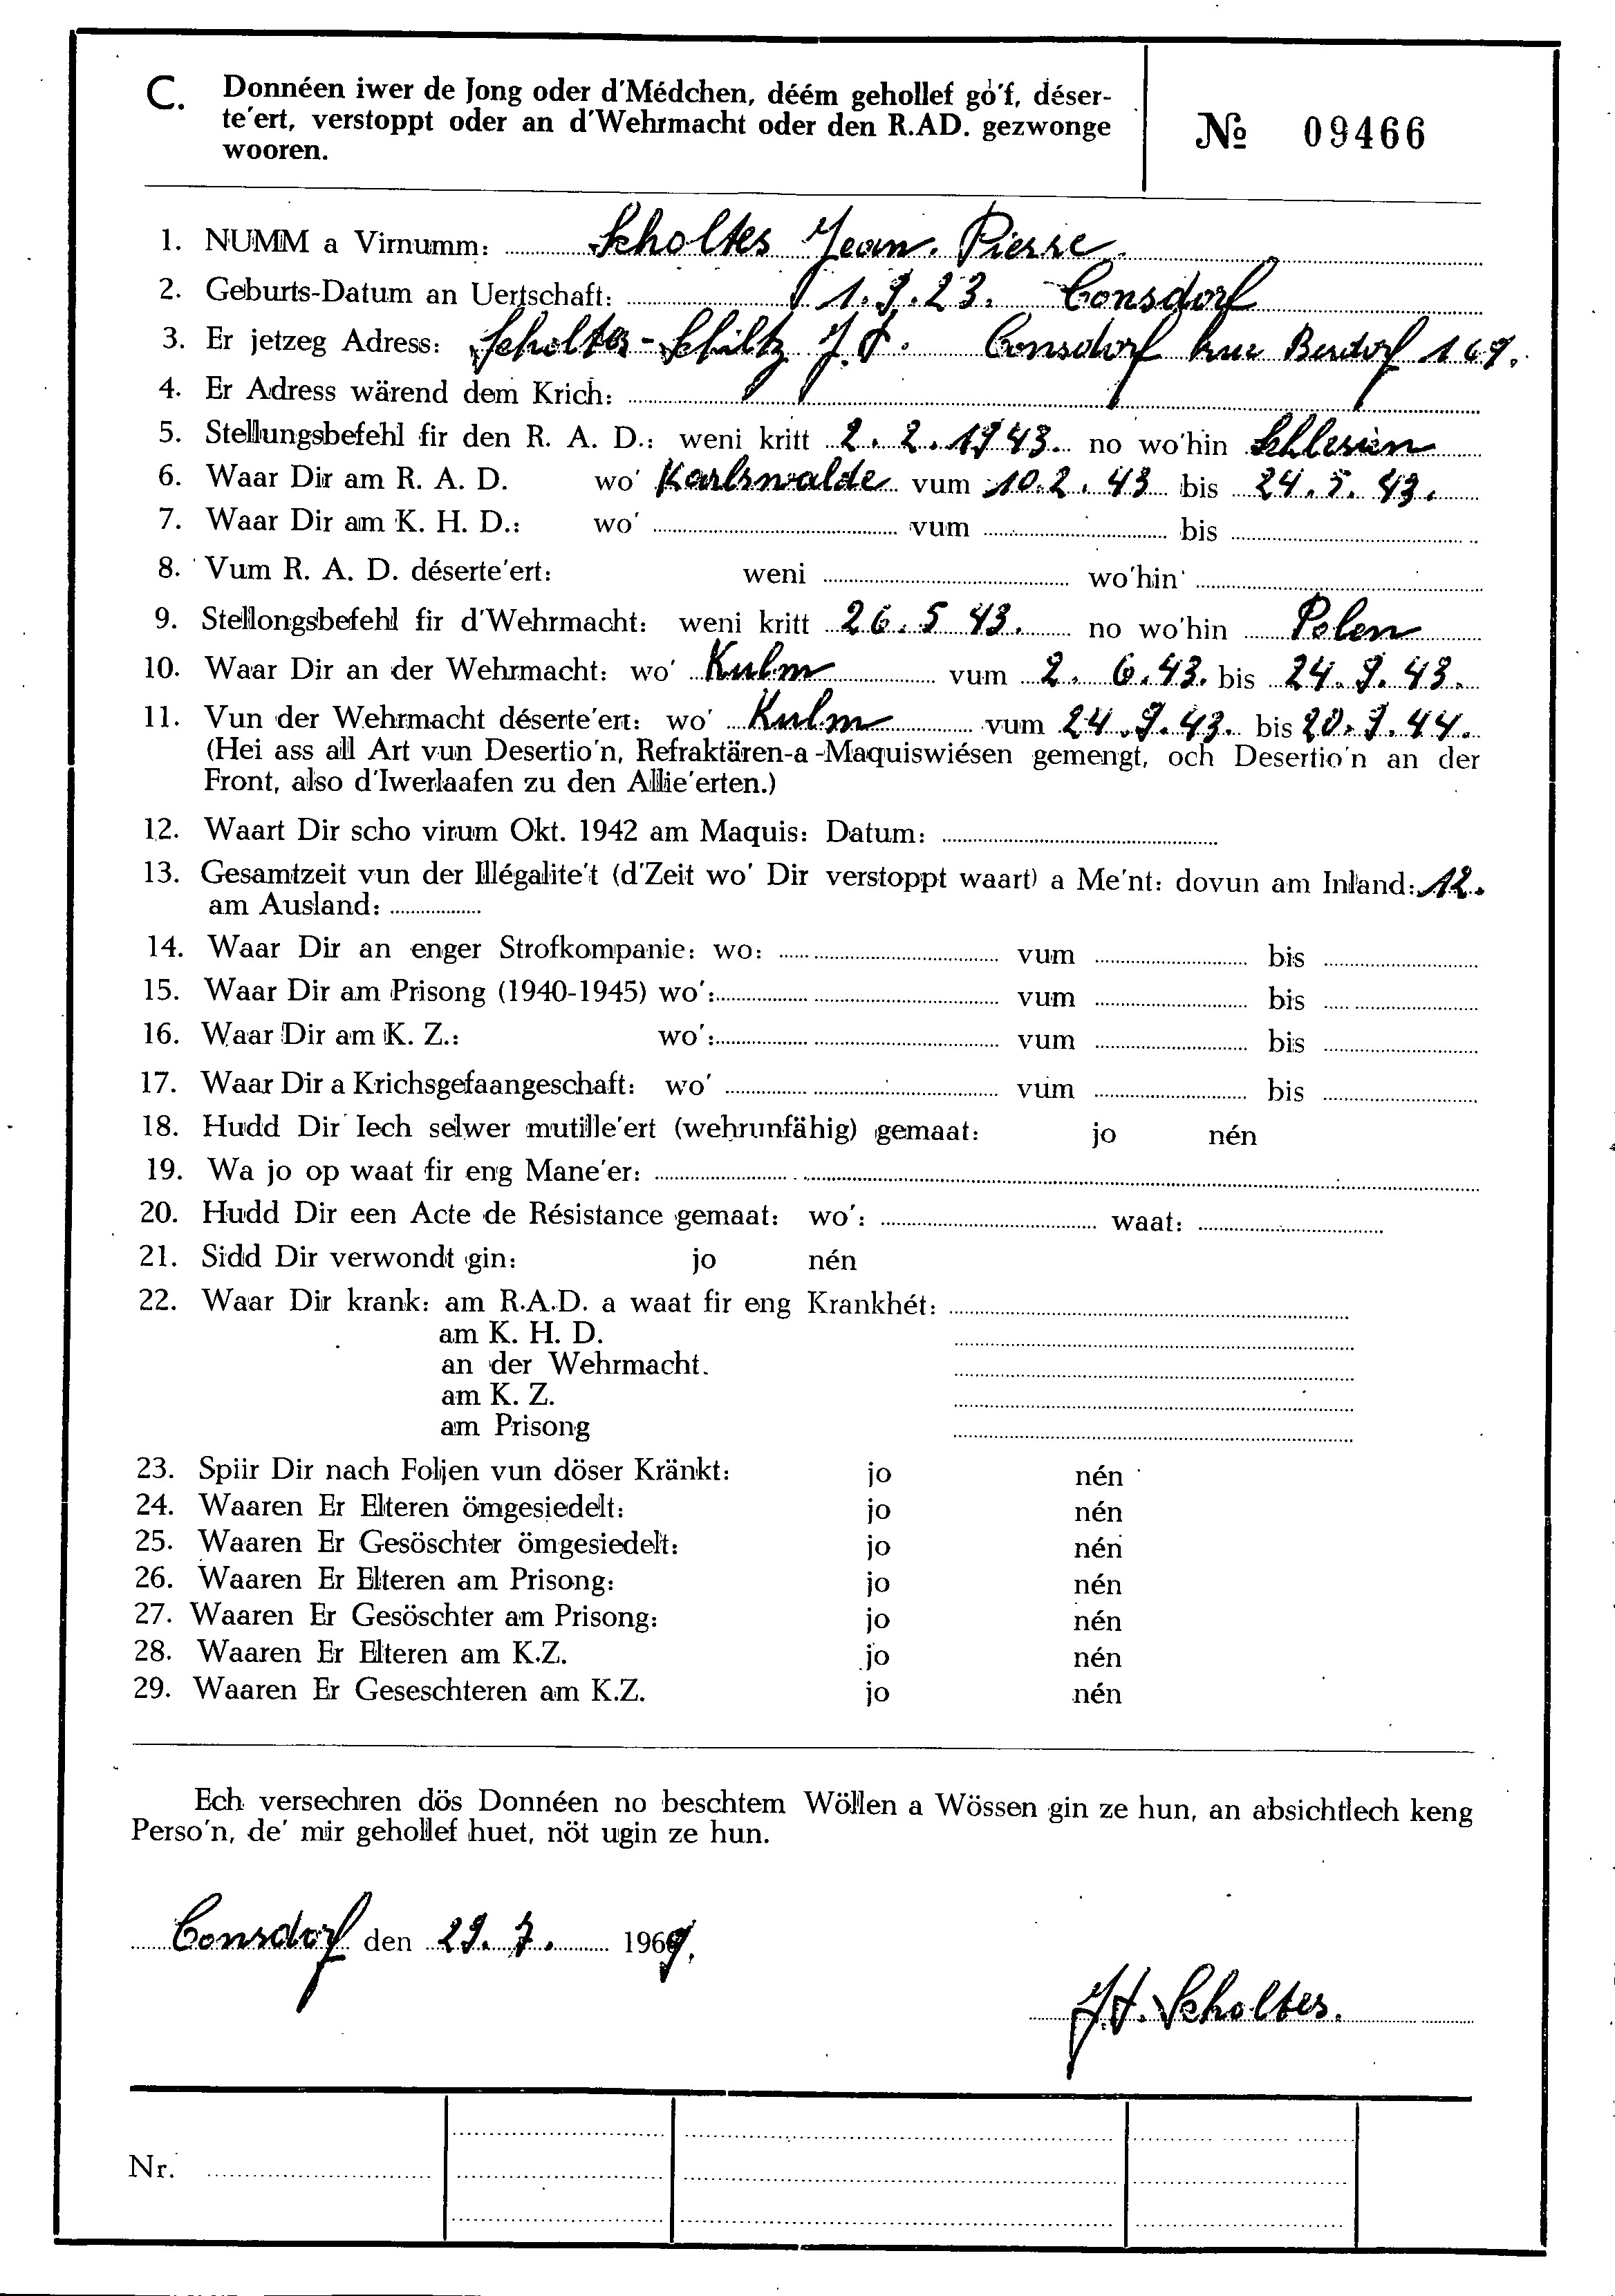 C. Donnéen iwer de Jong oder d'Médchen, déém gehollef go'f, déser-
te'ert, verstoppt oder an d'Wehrmacht oder den R.AD. gezwonge
wooren.
№ 09466
1. NUMM a Virnumm: Scholtes Jean. Pierre.
2. Geburts-Datum an Uertschaft: 1.9.23. Consdorf
3. Er jetzeg Adress: Scholtes-Schiltz J.P. Consdorf rue Berdorf 169.
4. Er Adress wärend dem Krich:
5. Stellungsbefehl fir den R. A. D.: weni kritt 2. 2. 1943. no wo'hin Schlesien
6. Waar Dir am R. A. D. wo' Karlswalde vum 10.2.43 bis 24.5.43.
7. Waar Dir am K. H. D.: wo' vum bis
8. Vum R. A. D. déserte'ert: weni wo'hin
9. Stellongsbefehl fir d'Wehrmacht: weni kritt 26.5 43. no wo'hin Polen
10. Waar Dir an der Wehrmacht: wo' Kulm vum 2. 6.43. bis 24.9.43.
11. Vun der Wehrmacht déserte'ert: wo' Kulm vum 24.9.43. bis 20.9.44.
(Hei ass all Art vun Desertio'n, Refraktären-a-Maquiswiésen gemengt, och Desertio'n an der
Front, also d'Iwerlaafen zu den Allie'erten.)
12. Waart Dir scho virum Okt. 1942 am Maquis: Datum:
13. Gesamtzeit vun der Illégalite't (d'Zeit wo' Dir verstoppt waart) a Me'nt: dovun am Inland: 12.
am Ausland:
14. Waar Dir an enger Strofkompanie: wo: vum bis
15. Waar Dir am Prisong (1940-1945) wo': vum bis
16. Waar Dir am K. Z.: wo': vum bis
17. Waar Dir a Krichsgefaangeschaft: wo' vum bis
18. Hudd Dir Iech selwer mutille'ert (wehrunfähig) gemaat: jo nén
19. Wa jo op waat fir eng Mane'er:
20. Hudd Dir een Acte de Résistance gemaat: wo': waat:
21. Sidd Dir verwondt gin: jo nén
22. Waar Dir krank: am R.A.D. a waat fir eng Krankhét:
am K. H. D.
an der Wehrmacht.
am K. Z.
am Prisong
23. Spiir Dir nach Foljen vun döser Kränkt: jo nén
24. Waaren Er Elteren ömgesiedelt: jo nén
25. Waaren Er Gesöschter ömgesiedelt: jo nén
26. Waaren Er Elteren am Prisong: jo nén
27. Waaren Er Gesöschter am Prisong: jo nén
28. Waaren Er Elteren am K.Z. jo nén
29. Waaren Er Geseschteren am K.Z. jo nén
Ech versechren dös Donnéen no beschtem Wöllen a Wössen gin ze hun, an absichtlech keng
Perso'n, de' mir gehollef huet, nöt ugin ze hun.
Consdorf den 29. 7. 1969.
J.P. Scholtes.
Nr.